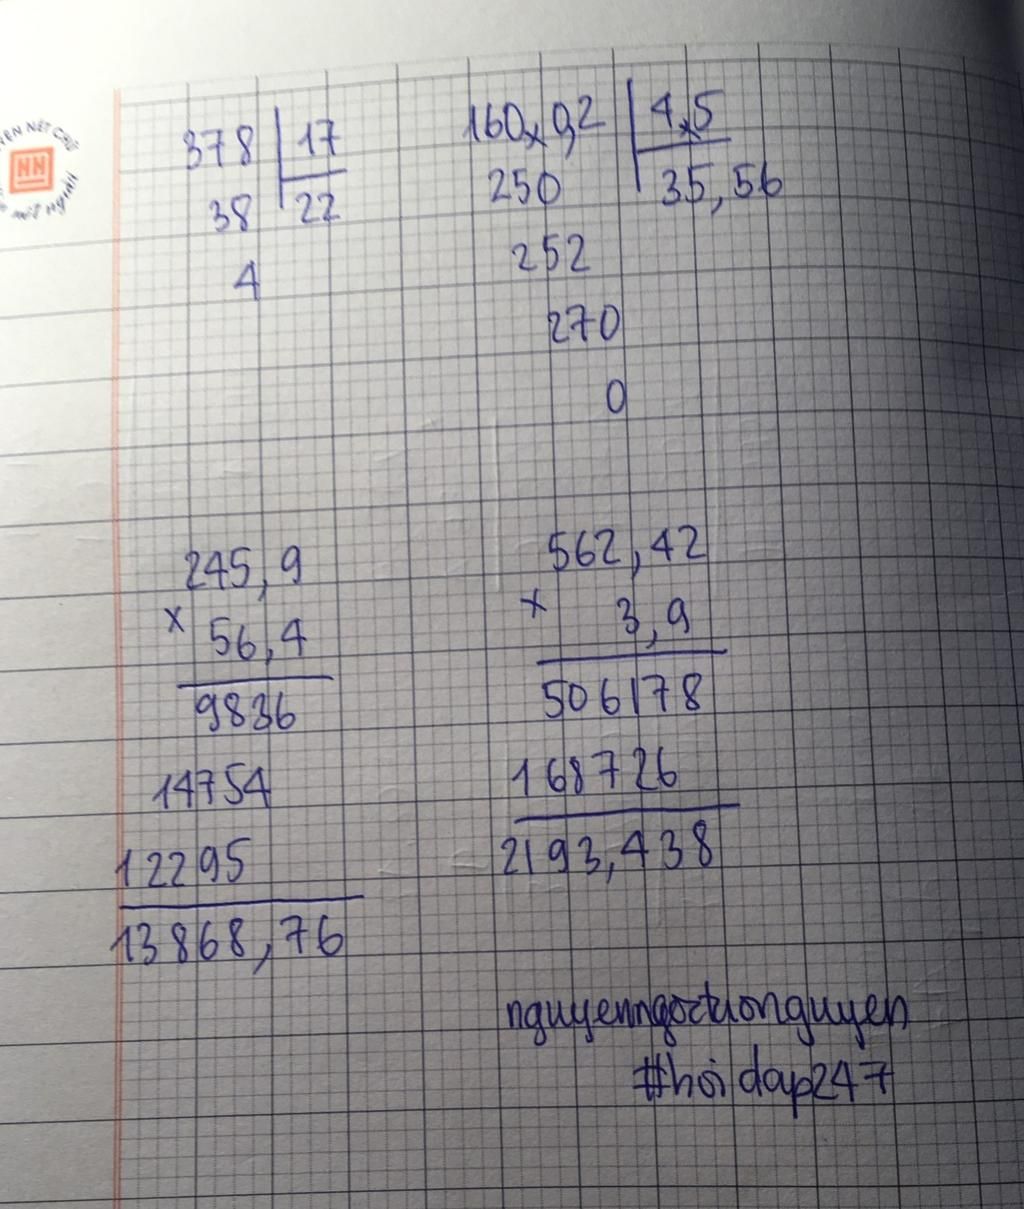 378 | 17
38 | 22
4
160,0,2 | 4,5
250 | 35,56
252
270
0
245,9
x 56,4
9836
14754
12295
13868,76
562,42
x 3,9
506178
168726
2193,438
#hoidap247
NN